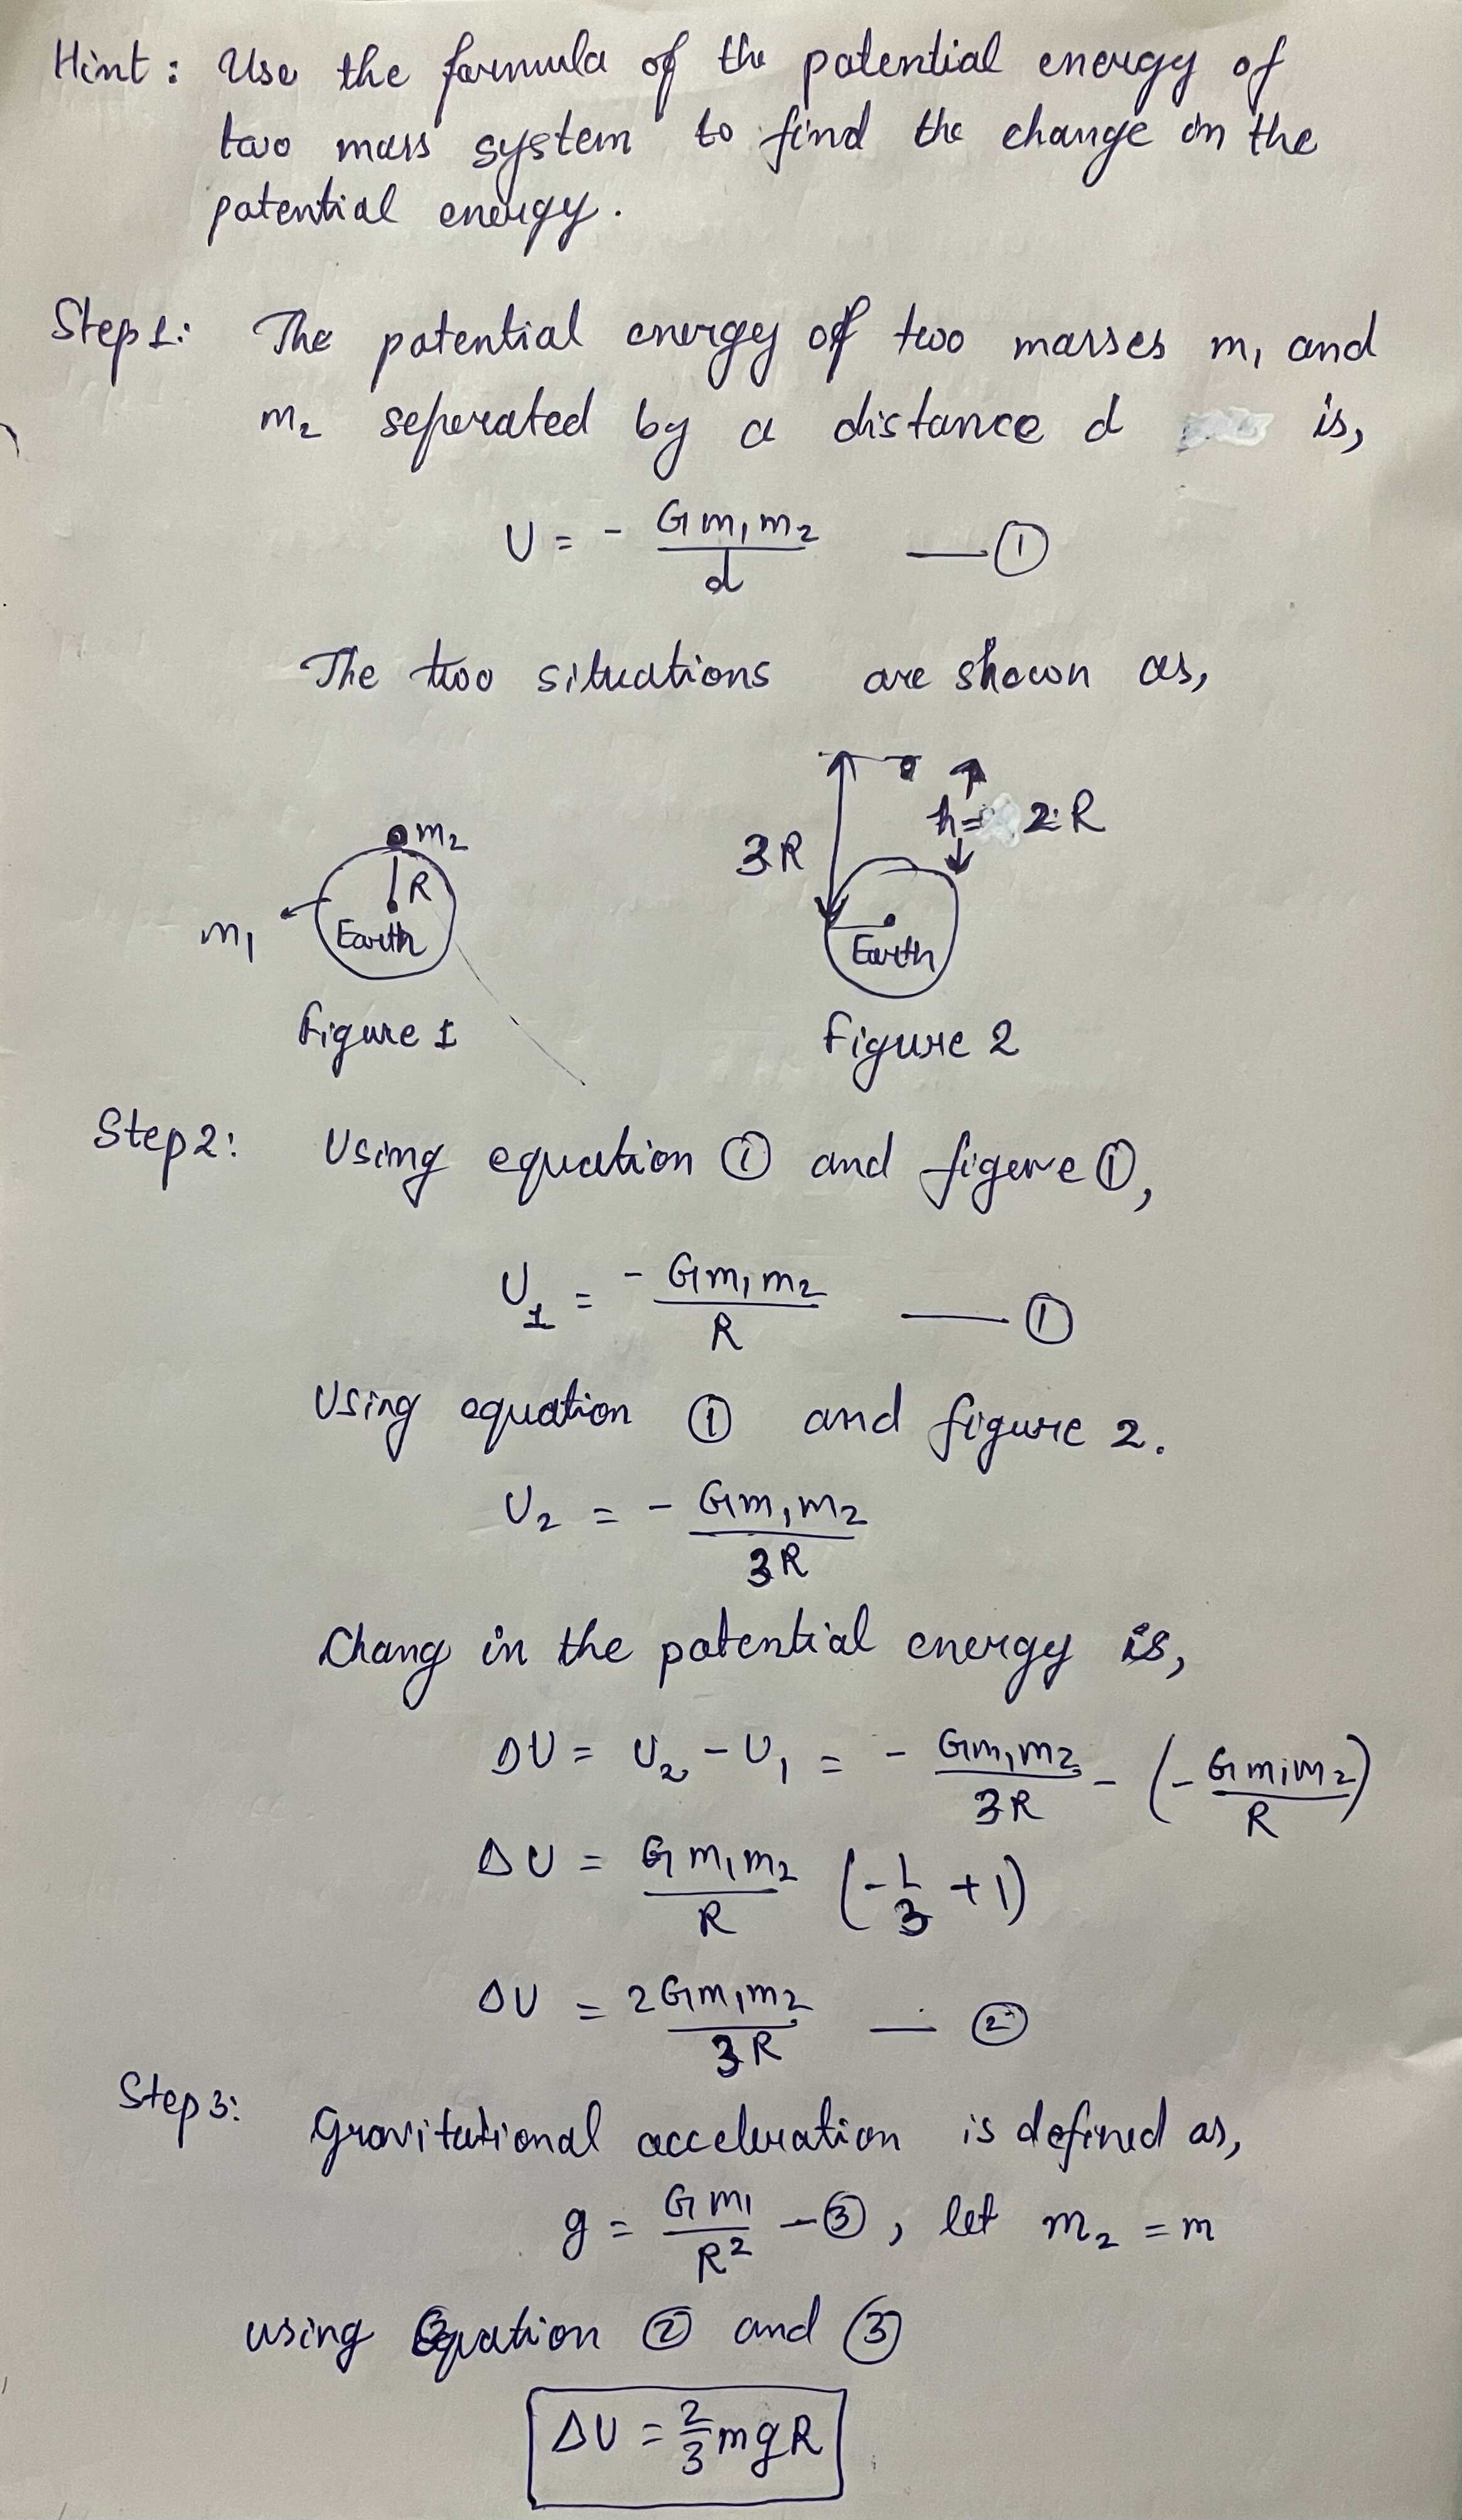 Hint : Use the formula of the potential energy of
two mass system to find the change in the
potential energy.
Step 1: The potential energy of two masses m₁ and
m₂ seperated by a distance d is,
U = - Gm₁m₂/d — ①
The two situations are shown as,
m₂
R
m₁
Earth
Figure 1
3R
h= 2R
Earth
Figure 2
Step 2: Using equation ① and figure ①,
U₁ = - Gm₁m₂/R — ①
Using equation ① and figure 2.
U₂ = - Gm₁m₂/3R
Chang in the potential energy is,
ΔU = U₂ - U₁ = - Gm₁m₂/3R - (- Gm₁m₂/R)
ΔU = Gm₁m₂/R (-1/3 + 1)
ΔU = 2Gm₁m₂/3R — ②
Step 3: Gravitational acceleration is defined as,
g = Gm₁/R² - ③, let m₂ = m
using Equation ② and ③
ΔU = 2/3 mgR